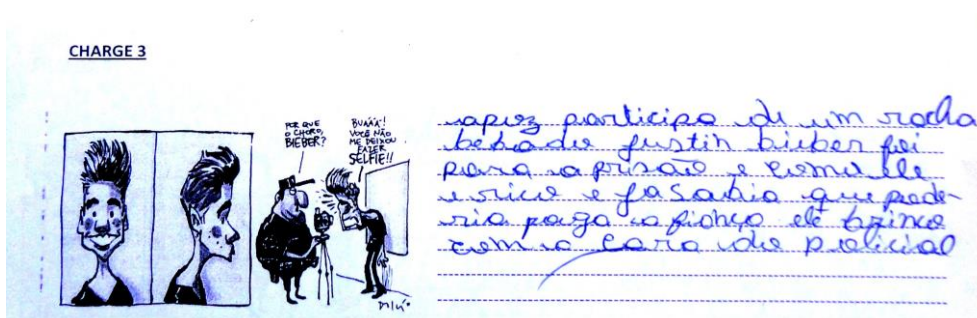 CHARGE 3
POR QUE
O CHORO,
BIEBER?
BUÁÁÁ!
VOCÊ NÃO
ME DEIXOU
FAZER
SELFIE!!
apoz participa de um racha
bebado justin bieber foi
para a prisão e como ele
e rico e ja sabia que pode-
ria paga a fiança ele brinco
com a cara do policial